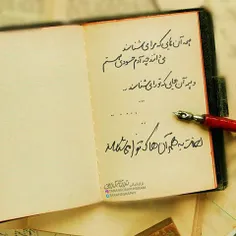 همه آن هایی که مرا می شناسند
می دانند چه آدم حسودی هستم
و همه آن هایی که تو را می شناسند ..
...
لعنت به همه آن ها که تو را می شناسند